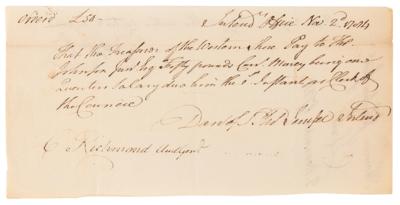 Ordered £50— Intend.ts Office Nov.r 2.d 1784
That the Treasurer of the Western Shore Pay to Tho.s
Johnson Jun.r Esq Fifty pounds Curr.t Money being one
Quarters Salary due him the Instant as Clerk of
the Council
Dan of S.t Tho.s Jenifer Intend
C Richmond Aud.r Gen.l